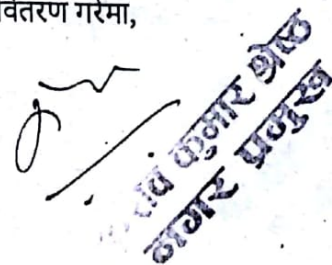 वितरण गरेमा,
कुमार श्रेष्ठ
नगर प्रमुख